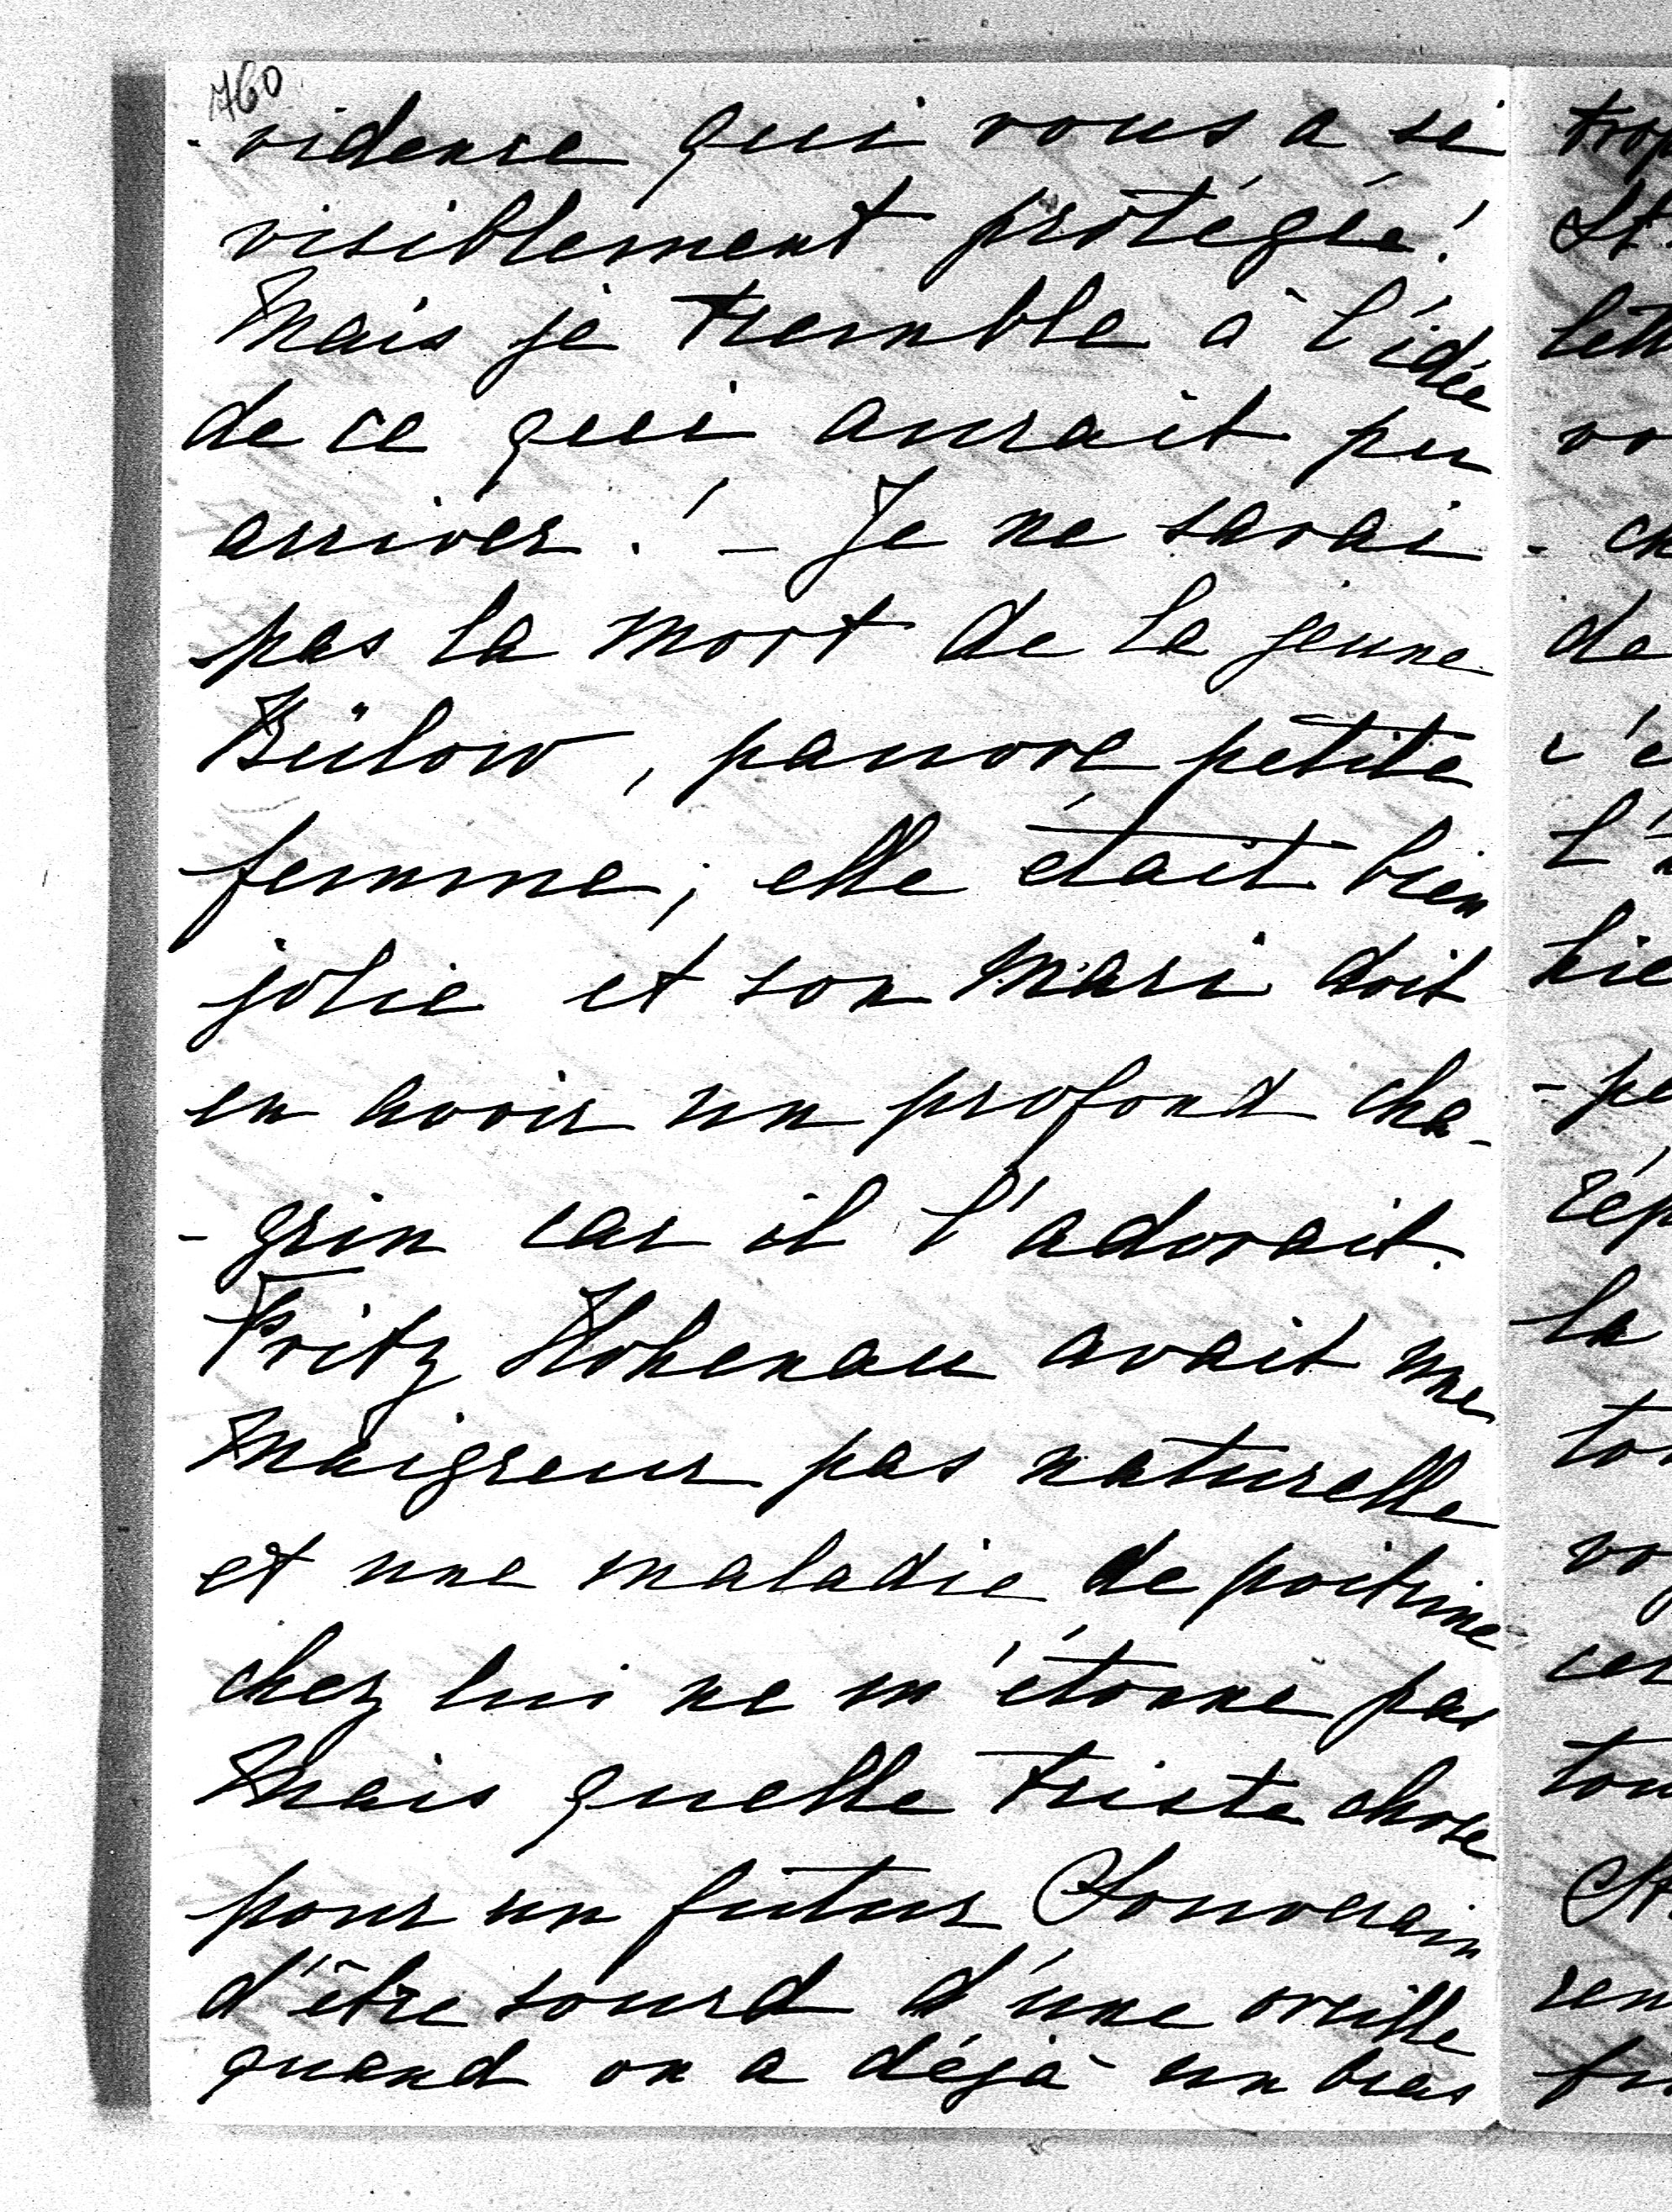 760
- vidence qui vous a si
visiblement protégée!
Mais je tremble à l'idée
de ce qui aurait pu
arriver! — Je ne savai
pas la mort de la jeune
Bülow, pauvre petite
femme; elle était bien
jolie et son mari doit
en avoir un profond cha-
- grin car il l'adorait.
Fritz Hohenau avait une
maigreur pas naturelle
et une maladie de poitrine
chez lui ne m'étonne pas
Mais quelle triste chose
pour un futur Souverain
d'être sourd d'une oreille
quand on a déjà un bras